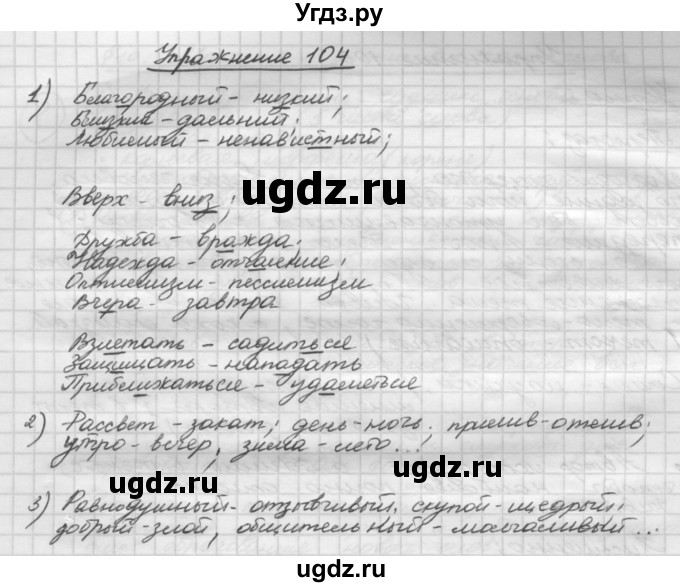 Угдз.ру
Упражнение 104
1) Благородный - низкий;
Близкий - дальний;
Любимый - ненавистный;
Вверх - вниз;
ugdz.ru
Дружба - вражда;
Надежда - отчаяние;
Оптимизм - пессимизм
Вчера - завтра
Взлетать - садиться
Защищать - нападать
Приближаться - удаляться
2) Рассвет - закат; день - ночь; прилив - отлив;
утро - вечер, зима - лето...
ugdz.ru ugdz.ru
3) Равнодушный - отзывчивый, скупой - щедрый;
добрый - злой, общительный - молчаливый...
ugdz.ru ugdz.ru